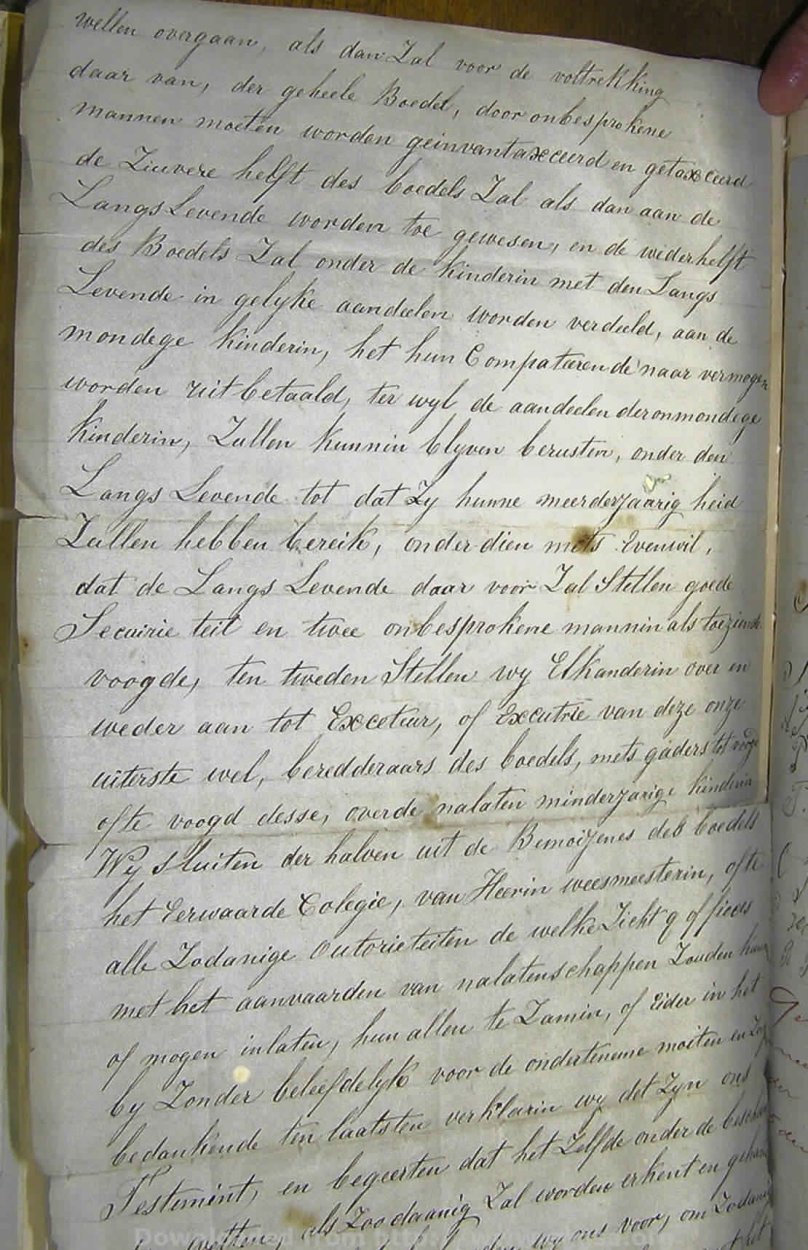 wellen overgaan, als dan Zal voor de voltrekking
daar van, der geheele Boedel, door onbesprokene
mannen moeten worden geinvantaxceerd en getaxceerd
de Ziuvere helft des boedels Zal als dan aan de
Langs Levende worden toe gewesen, en de wederhelft
des Boedels Zal onder de Kinderin met den Langs
Levende in gelyke aandeelen worden verdeeld, aan de
mondege Kinderin, het hun Compatuerende naar vermogen
worden uit betaald, ter wyl de aandeelen der onmondege
Kinderin, Zullen Kunnin blyven berusten, onder den
Langs Levende tot dat Zy hunne meerderjaarig heid
Zullen hebben bereik, onder dien mets Evenwil,
dat de Langs Levende daar voor Zal Stellen goede
Secuirie teit en twee onbesprokene mannin als toeziende
voogde, ten tweden Stellen wy Elkanderin over en
weder aan tot Excetuur, of Excutrie van deze onze
uiterste wel, beredderaars des boedels, mets gaders tot
ofte voogd desse, overde nalaten minderjarige kinderin
Wy Sluiten der halven uit de Bemoijenes des boedels
het Eerwaarde Colegie, van Heerin weesmeesterin, ofte
alle Zodanige Outorieteiten de welke Zicht q officus
met het aanvaarden van nalatenschappen Zouden
of mogen inlaten, hun allen te Zamin, of Eider in het
by Zonder beleefdelyk voor de onderteneme moiten en
bedankende ten laatsten verklarin wy det Zyn ons
Testemint, en begeerten dat het Zelfde onder de
wetten, als Zoodaanig Zal worden erkent en
wy ons voor, om Zodanig